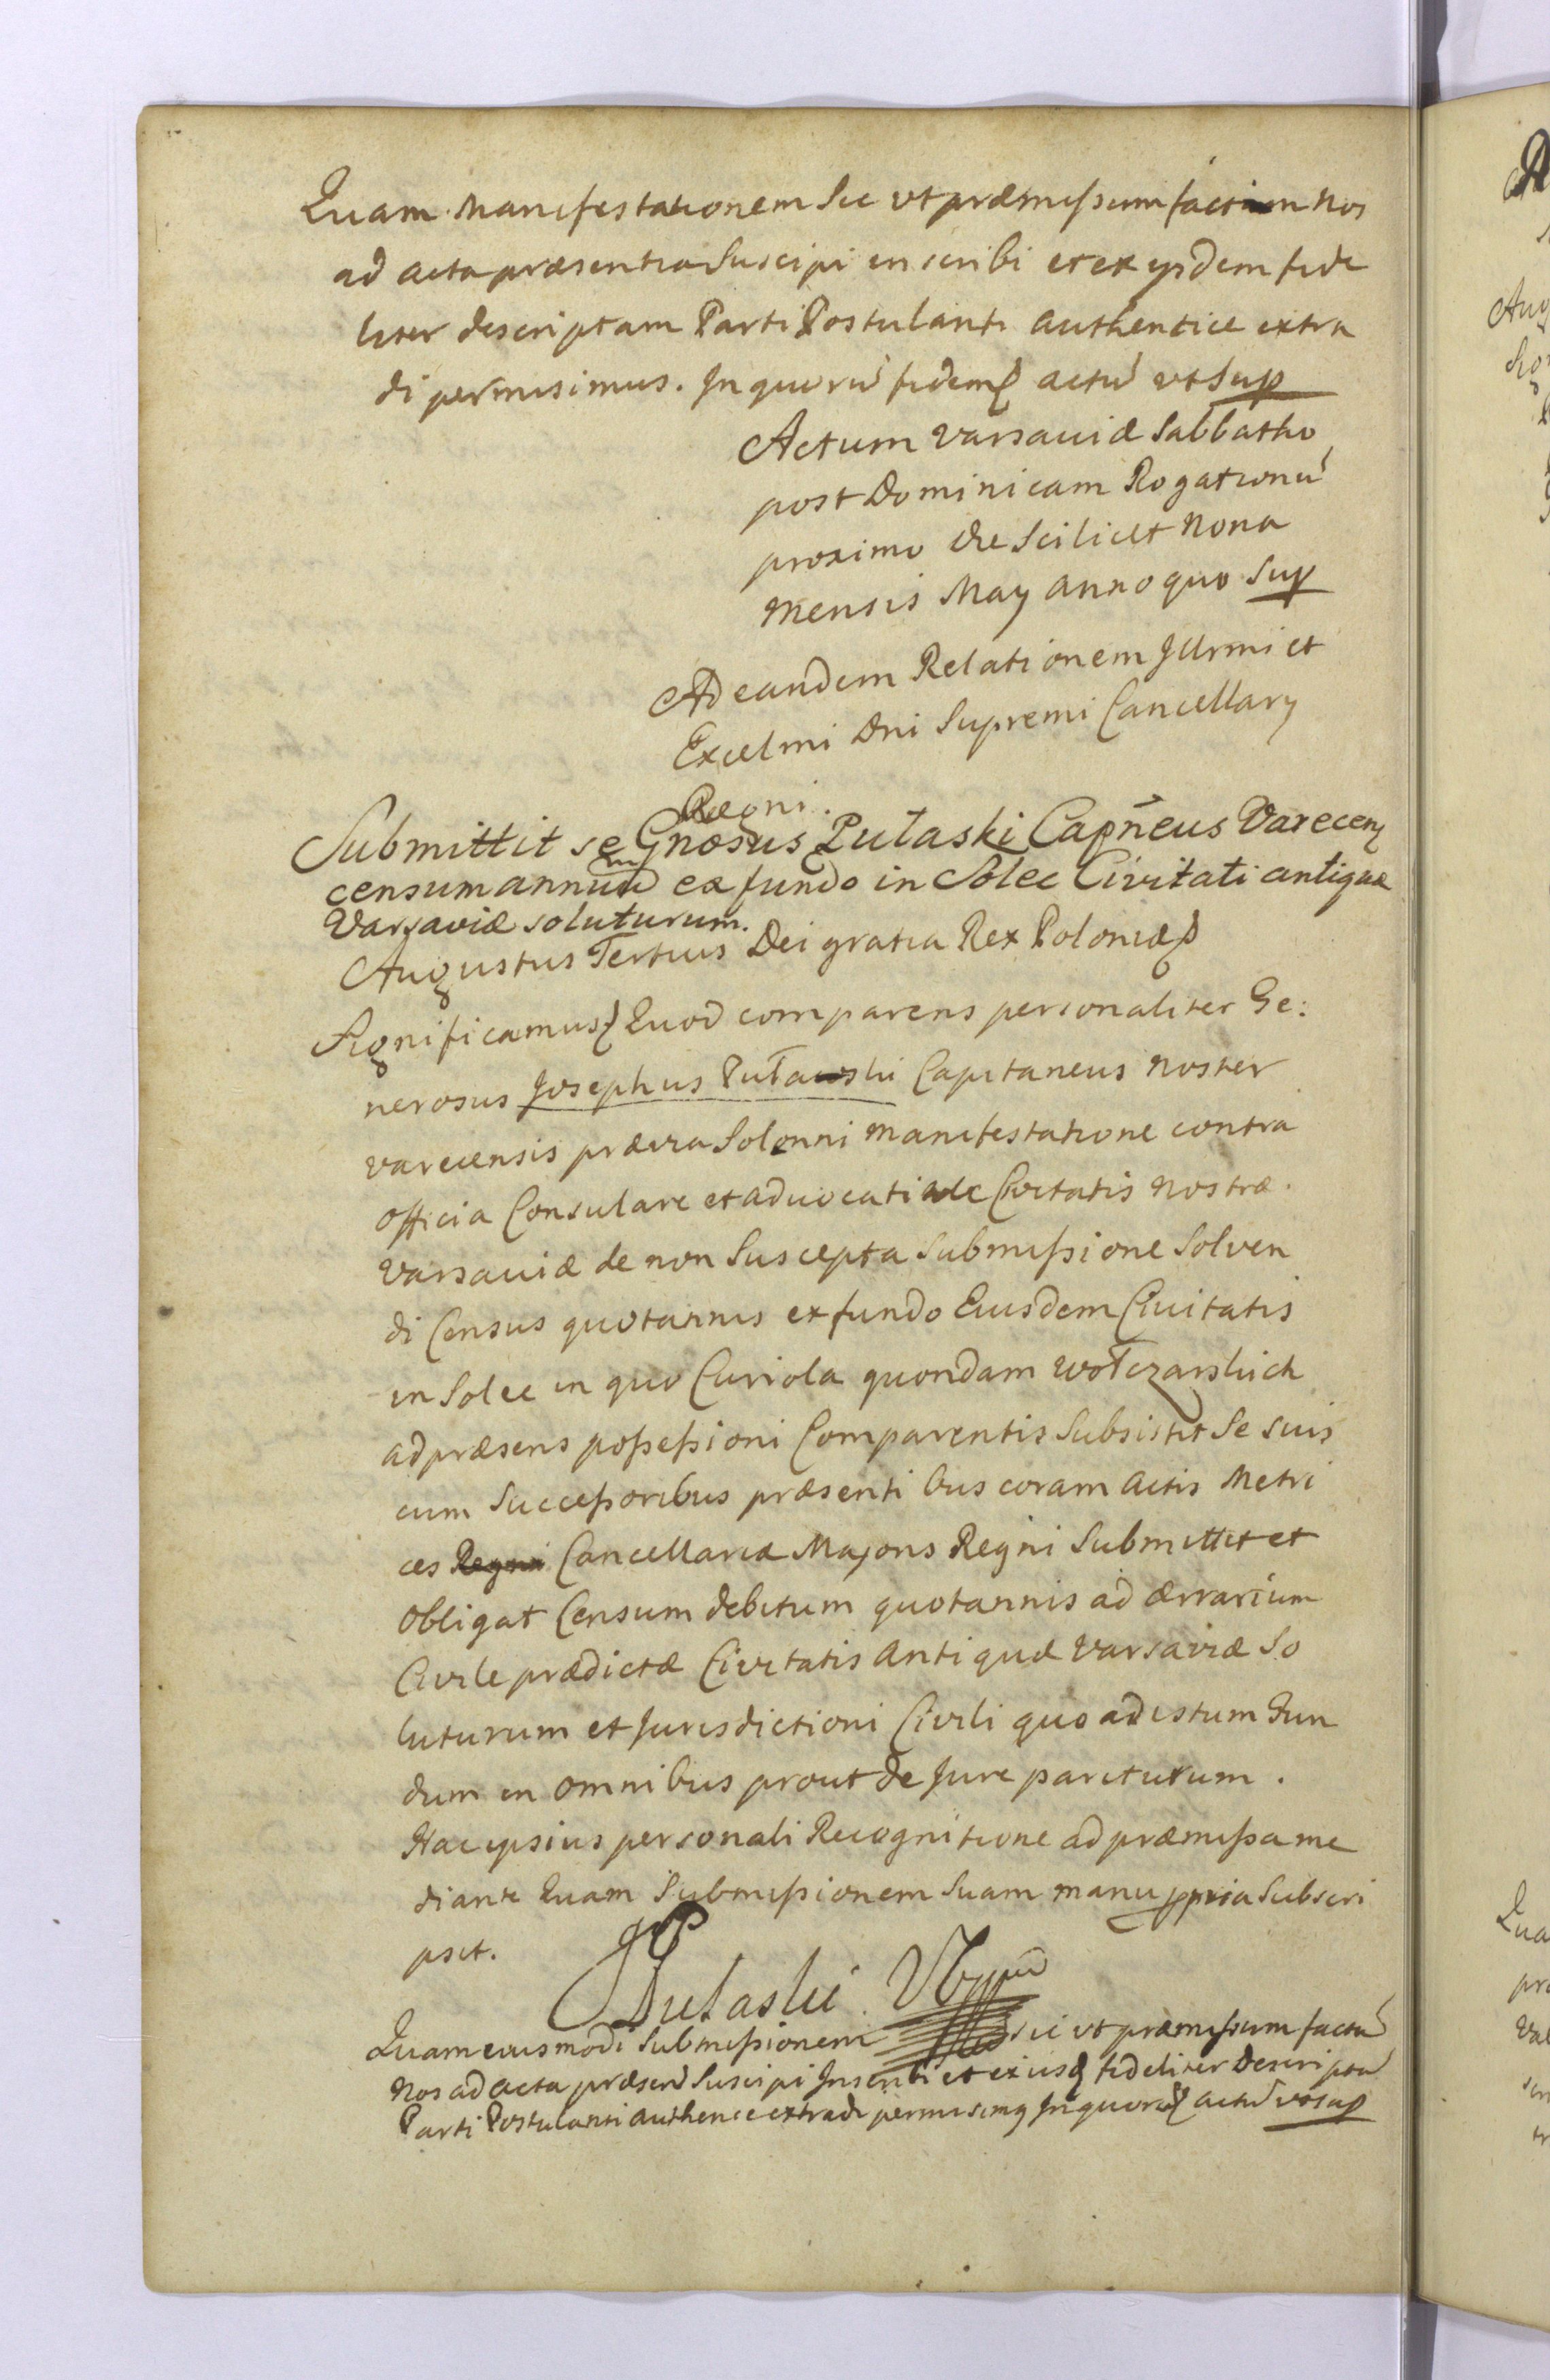 Quam Manifestationem Sic vt præmissum factam Nos
ad acta præsentia Suscipi inscribi et ex ijsdem fide
liter descriptam Parti Postulanti authentice extra
di permisimus. In quorũ fidem actũ vt Sup
Actum Varsaviæ Sabbatho
post Dominicam Rogationũ
proximo die Scilicet Nona
Mensis May anno quo Sup
Ad eandem Relationem Jllrmi et
Excelmi Dni Supremi Cancellary
Regni.
Submittit se Gnosus Pułaski Capneus Varecens
censum annuum ex fundo in Solec Civitati antiquæ
Varsaviæ soluturum.
Augustus Tertius Dei gratia Rex Poloniæ
Significamus Quod comparens personaliter Ge:
nerosus Josephus Pułaski Capitaneus Noster
varecensis prævia Solenni Manifestatione contra
officia Consulare et advocatiale Civitatis Nostræ
Varsaviæ de non Suscepta Submissione Solven
di Census quotannis ex fundo Eiusdem Civitatis
in Solec in quo Curiola quondam Wołczarskich
ad præsens possessioni Comparentis Subsistit Se suis
cum Successoribus præsenti bus coram actis Metri
ces Regni Cancellariæ Majoris Regni Submittit et
obligat Censum debitum quotannis ad ærrarium
Civile prædictæ Civitatis Antiquæ Varsaviæ So
luturum et Jurisdictioni Civili quo ad istum Fun
dum in omnibus prout de Jure pariturum.
Hac ipsius personali Recognitione ad præmissa me
diante Quam Submissionem Suam manu ppria Subscri
psit.
JPułaski
Quam eiusmodi Submissionem sic vt præmissum factũ
Nos ad acta præsen Suscipi Inscribi et ex iisd fideliter Descriptũ
Parti Postulanti authence extradi permisimq In quorũ actũ vt sup
Aug
Qua